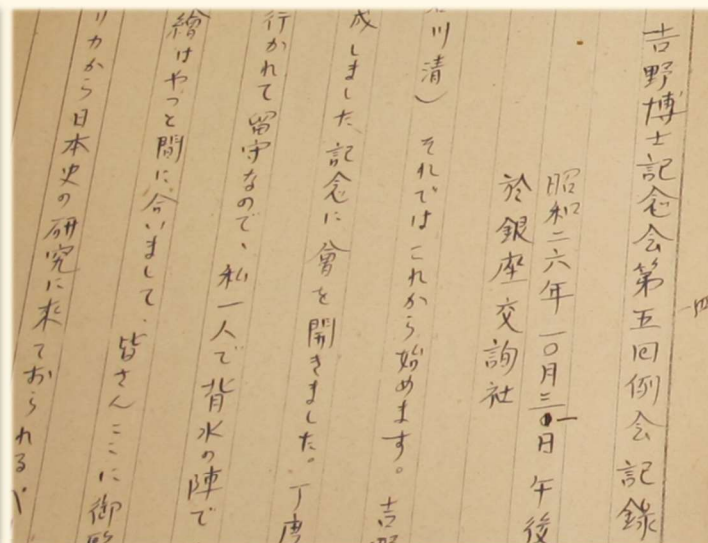 吉野博士記念会第五回例会記録
昭和二六年一〇月三一日 午後
於銀座交詢社
川清) それではこれから始めます。吉
成しました記念に會を開きました。丁度
行かれて留守なので、私一人で背水の陣で
繪はやっと間に合いまして、皆さんここに御
リカから日本史の研究に来ておられる